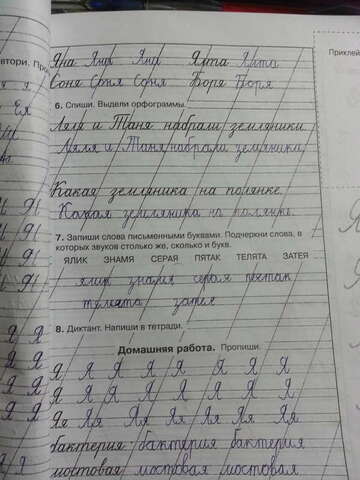 Яна Яна Яна Ялта Ялта
Соня Соня Соня Боря Боря
6. Спиши. Выдели орфограммы.
Ляля и Таня набрали земляники.
Ляля и Таня набрали земляники.
Какая земляника на полянке.
Какая земляника на полянке.
7. Запиши слова письменными буквами. Подчеркни слова, в
которых звуков столько же, сколько и букв.
ЯЛИК ЗНАМЯ СЕРАЯ ПЯТАК ТЕЛЯТА ЗАТЕЯ
ялик знамя серая пятак
телята затея
8. Диктант. Напиши в тетради.
Домашняя работа. Пропиши.
Я Я Я Я Я Я Я Я
Я Я Я Я Я Я Я Я
Яя Яя Яя Яя Яя Яя Яя
бактерия бактерия бактерия
мостовая мостовая мостовая